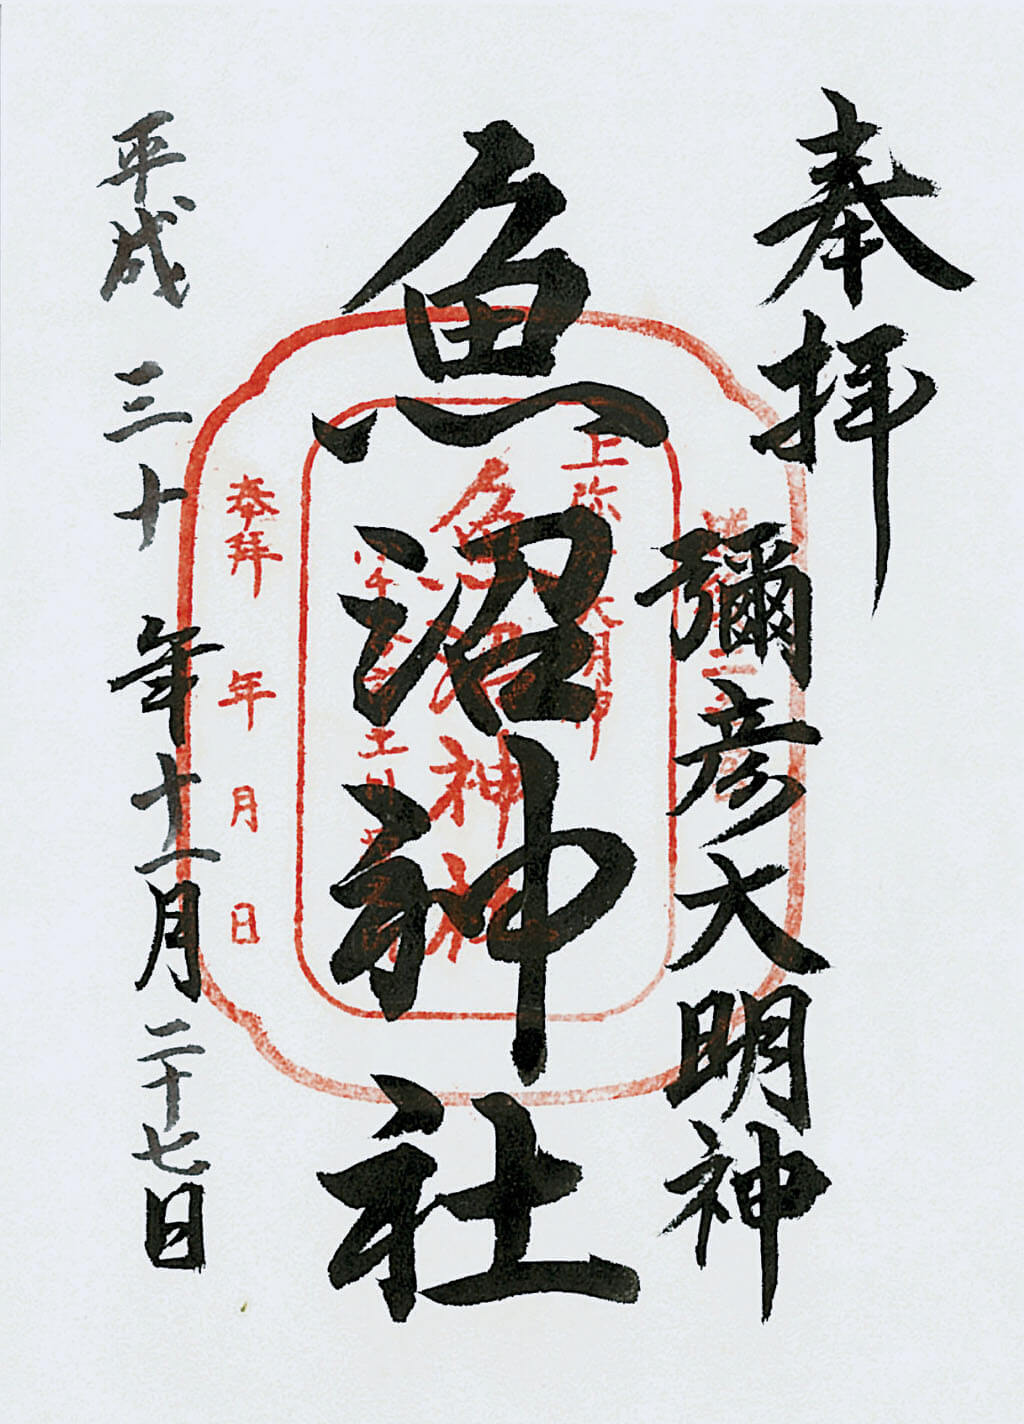 奉拝
彌彦大明神
魚沼神社
平成三十年十一月二十七日
上弥彦大明神
魚沼神社
奉拜
年月日